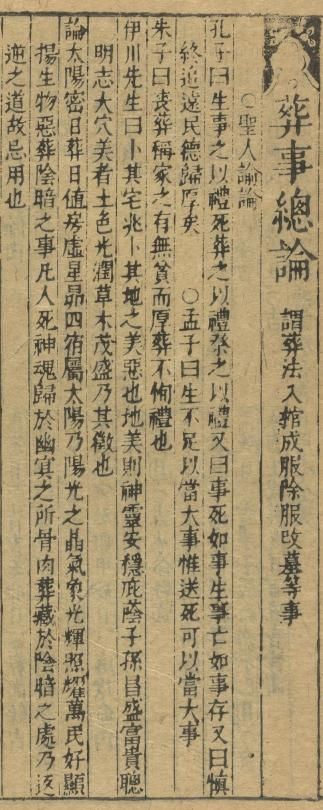 葬事總論 謂葬法入棺成服除服改墓等事
○聖人諭論
孔子曰生事之以禮死葬之以禮祭之以禮又曰事死如事生事亡如事存又曰慎
終追遠民德歸厚矣 ○孟子曰生不足以當大事惟送死可以當大事
朱子曰喪葬稱家之有無貧而厚葬不徇禮也
伊川先生曰卜其宅兆卜其地之美惡也地美則神靈安穩庇蔭子孫昌盛富貴聰
明志大穴美者土色光潤草木茂盛乃其徵也
論太陽密日葬日值房虛星昴四宿屬太陽乃陽光之晶氣象光輝照耀萬民好顯
揚生物惡葬陰暗之事凡人死神魂歸於幽冥之所骨肉葬藏於陰暗之處乃返
逆之道故忌用也